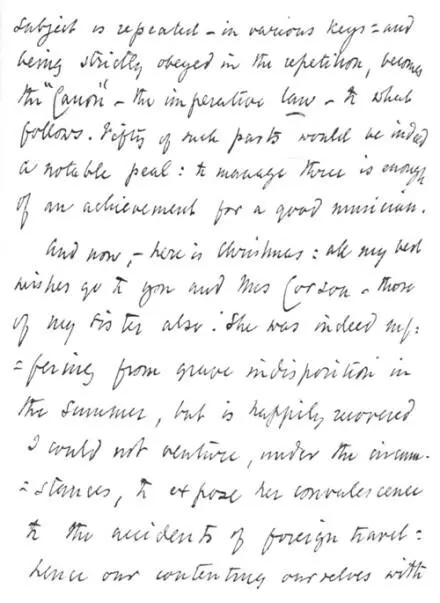 subject is repeated – in various keys – and
being strictly obeyed in the repetition, becomes
the "Canon" – the imperative law – to what
follows. Fifty of such parts would be indeed
a notable peal: to manage three is enough
of an achievement for a good musician.
And now, – here is Christmas: all my best
wishes go to you and Mrs Corson – those
of my sister also. She was indeed suf:
=fering from grave indisposition in
the summer, but is happily recovered
I could not venture, under the circum-
=stances, to expose her convalescence
to the accidents of foreign travel –
hence our contenting ourselves with